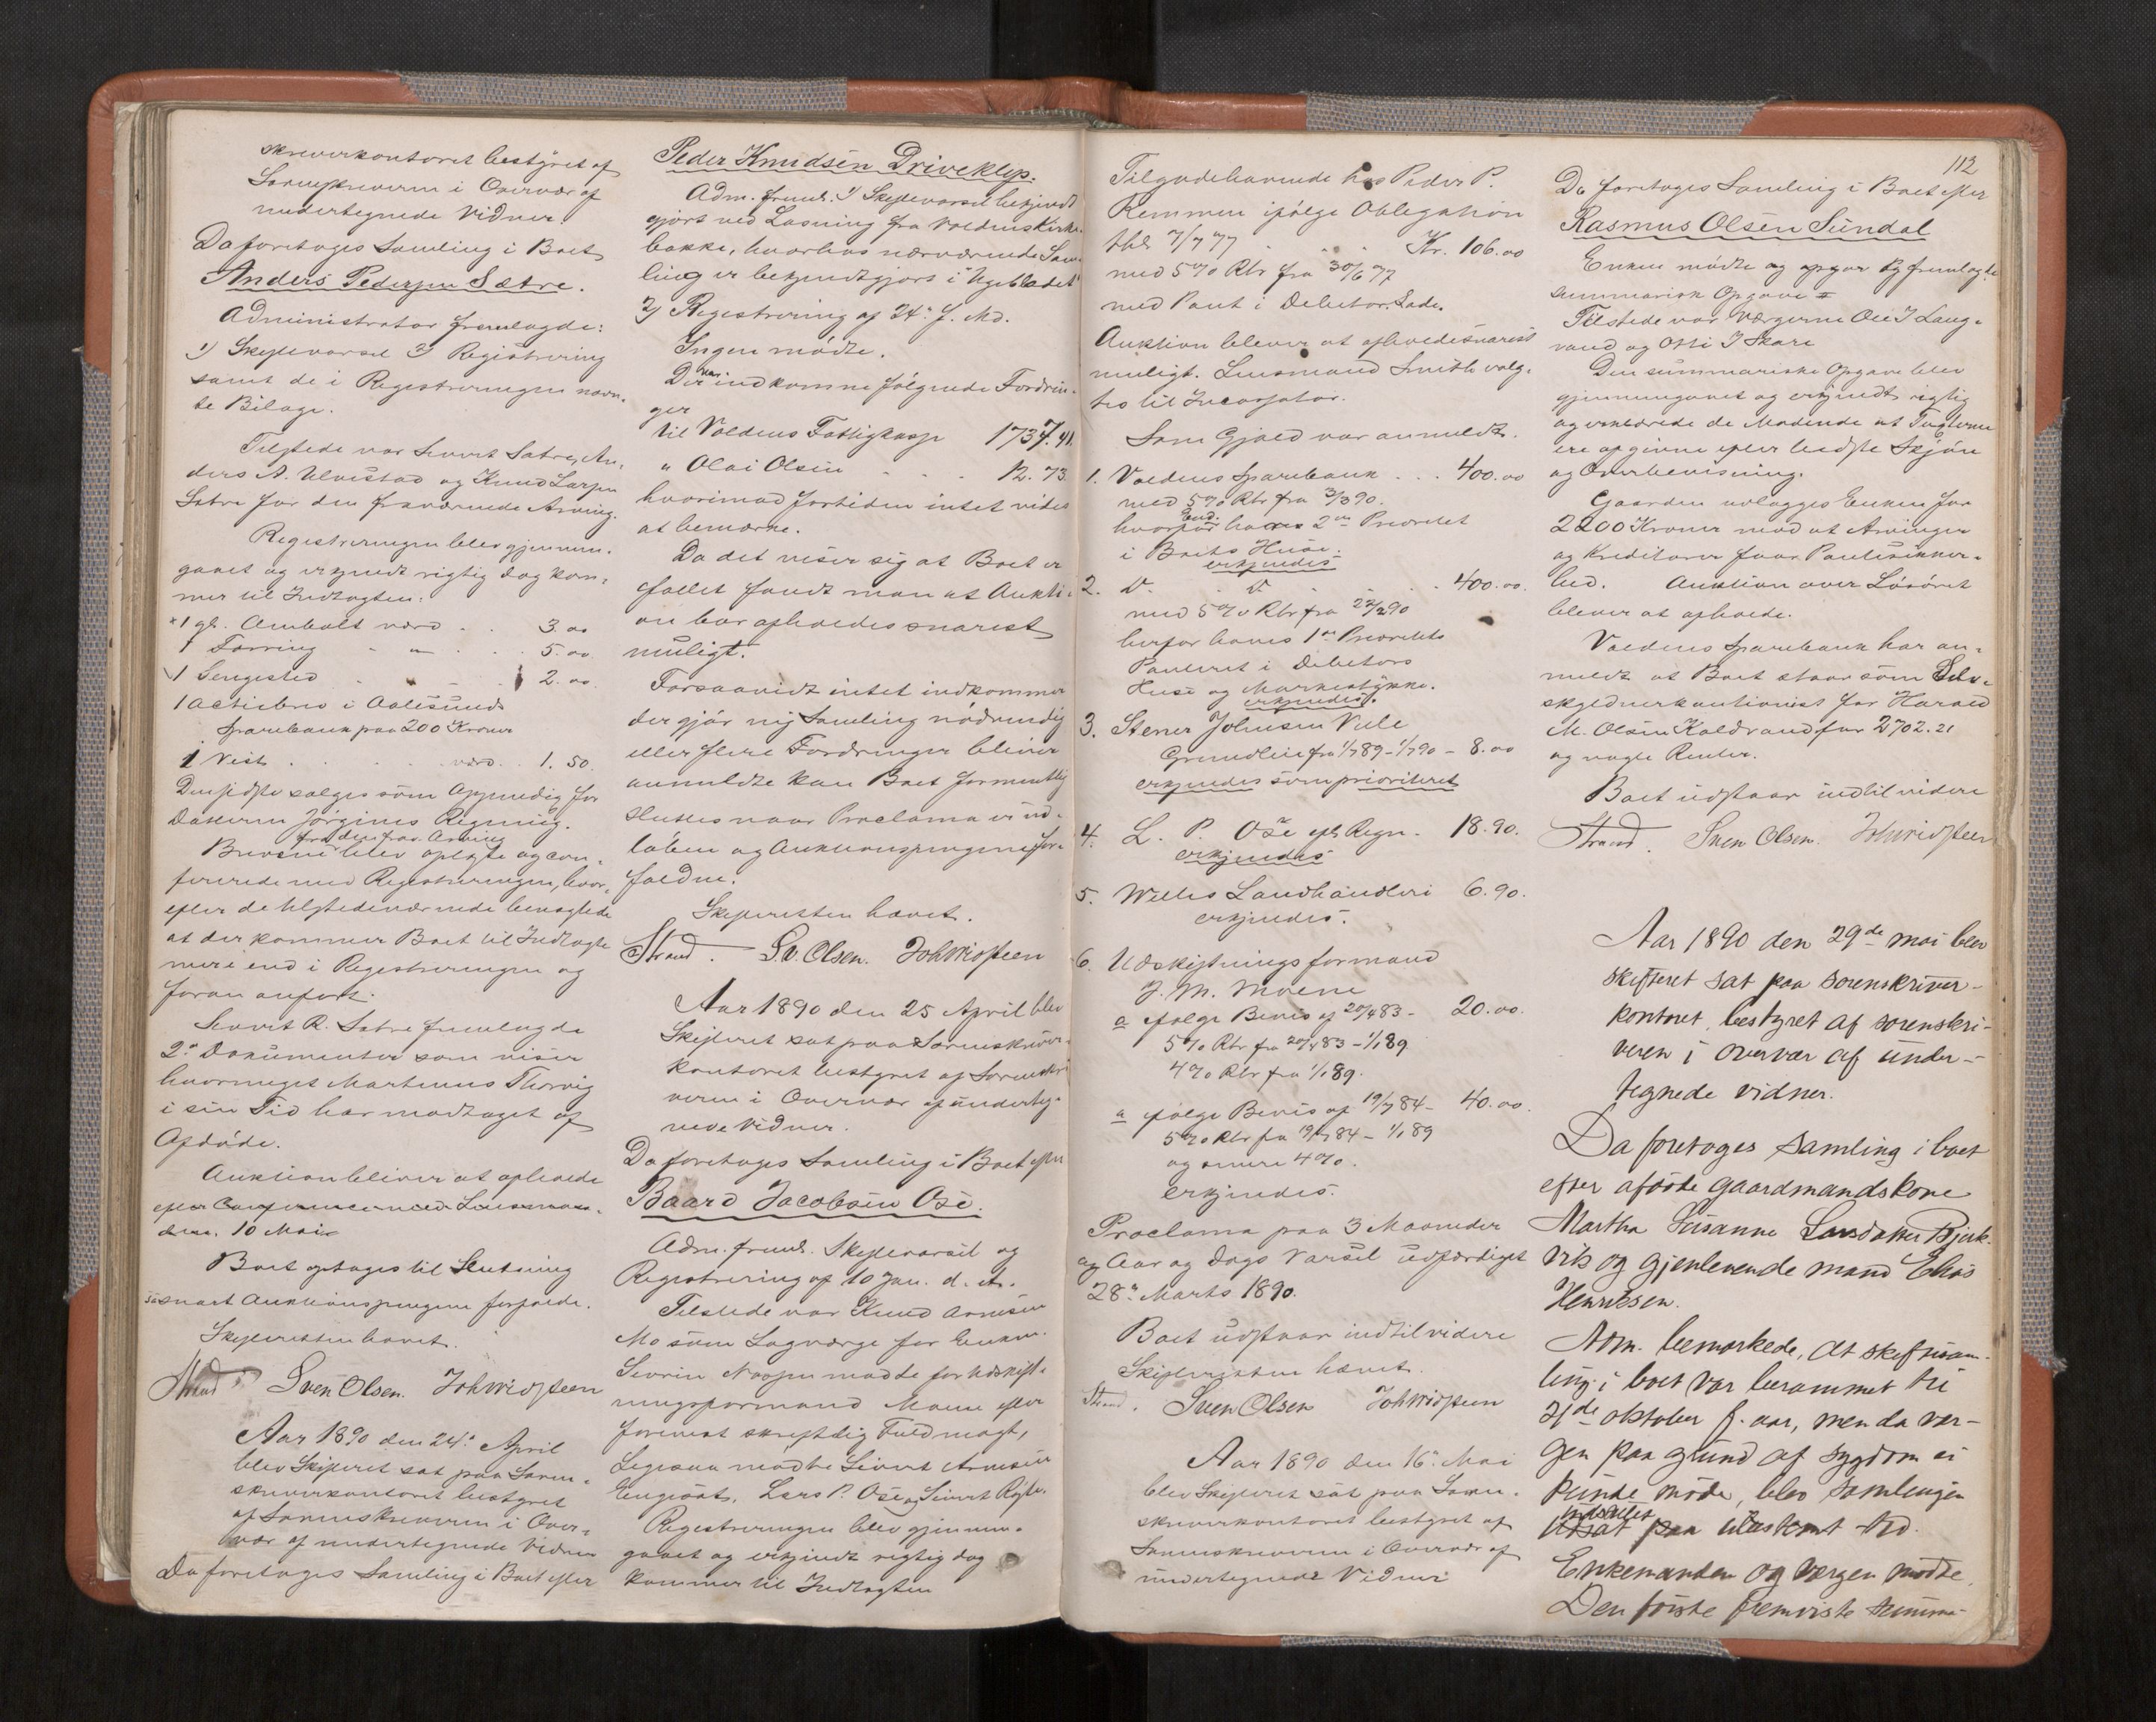 skriverkontoret bestyret af
Sorenskriveren i Overvær af
undertegnede Vidner
Da foretoges Samling i Boet
Anders Pedersen Sætre.
Administrator fremlagde:
1) Skiftevarsel 2) Registrering
samt de i Registreringen nævn-
te Bilage.
Tilstede var Sivert Sætre, An-
ders A. Ulvestad og Knud Larsen
Sætre for den fraværende Arving.
Registreringen blev gjennem-
gaaet og erkjendt rigtig dog kom-
mer til Indtægten:
1 gl. Ambolt værd . . 3.00
1 Tørring - " - . . 5.00
1 Sengested . . 2.00
1 Actiebrev i Aalesunds
Sparebank paa 200 Kroner
1 Vest . . . værd . 1.50.
Den sidste sælges som for
Datteren Jørgines Regning.
fra den fra. Arving
Brevene blev oplæste og con-
fererede med Registreringen, hvor-
efter de tilstedeværende benægtede
at der kommer Boet til Indtægte
mere end i Registreringen og
foran anført.
Sivert R. Sætre fremlagde
2de Dokumenter som viser
hvormeget Martinus Thorvig
i sin Tid har modtaget af
Afdøde.
Auktion bliver at afholde
efter Conference med Lensman-
den. 10 Mai
Boet optages til Slutning
saasnart Auktionspengene forfalde.
Skifteretten hævet.
Strand Sven Olsen. Joh Widsteen
Aar 1890 den 24de April
blev Skifteret sat paa Soren-
skriverkontoret bestyret
af Sorenskriveren i Over-
vær af undertegnede Vidner
Da foretoges Samling i Boet efter
Peder Knudsen Driveklep.
Adm. freml. 1) Skiftevarsel bekjendt
gjort ved Læsning fra Voldens Kirke-
bakke, hvorhos nærværende Sam-
ling er bekjendtgjort i "Ugebladet"
2) Registrering af 24de f. Md.
Ingen mødte.
Der var indkomne følgende Fordrin-
ger
til Voldens Fattigkasse 1737.41.
" Olai Olsen - - 12.73
hvorimod fortiden intet vides
at bemærke.
Da det viser sig at Boet er
fallit fandt man at Aukti-
on bør afholdes snarest
muligt.
Forsaavidt intet indkommer
der gjør ny Samling nødvendig
eller flere Fordringer bliver
anmeldte kan Boet formentlig
sluttes naar Proclama er ud-
løben og Auktionspengene for-
faldne.
Skifteretten hævet.
Strand. S.v. Olsen. Joh Widsteen
Aar 1890 den 25 April blev
Skifteret sat paa Sorenskriver-
kontoret bestyret af Sorenskri-
veren i Overvær af underteg-
nede Vidner.
Da foretoges Samling i Boet efter
Baard Jacobsen Ose.
Adm. freml. Skiftevarsel og
Registrering af 10 Jan. d. A.
Tilstede var Knud Arnesen
Mo som Lagværge for Enken.
Severin Naasen mødte for Udskift-
ningsformand Moene efter
forevist skriftlig Fuldmagt,
Ligesaa mødte Sivert Arnesen
Engeset, Lars P. Ose og Sivert
Registreringen blev gjennem-
gaaet og erkjendt rigtig dog
kommer til Indtægten
112
Tilgodehavende hos Peder P.
Remmen ifølge Obligation
thl. 7/7 77 . . . Kr. 106.00
med 5% Rtr fra 30/6 77
med Pant i Debitors Lade.
Auktion bliver at afholde snarest
muligt. Lensmand Smith valg-
tes til Incassator.
Som Gjæld var anmeldt.
1. Voldens Sparebank . . . 400.00
med 5% Rtr fra 3/3 90.
hvorfor End. haves 2den Prioritet
i Boets Huse.
erkjendes
2. D. D. . . 400.00.
med 5% Rtr fra 22/2 90
herfor haves 1ste Prioritets
Panteret i Debitors
Huse og Markestykke.
erkjendes.
3. Stener Johnsen Viele
Grundleie fra 1/7 89 - 1/7 90 - 8.00
erkjendes som prioriteret
4. L. P. Ose eft Regn. 18.90.
erkjendes
5. Welles Landhandleri 6.90.
erkjendes.
6. Udskiftningsformand
J. M. Moene
a ifølge Bevis af 20/4 83 - 20.00.
5% Rtr fra 20/4 83 - 1/1 89
4% Rtr fra 1/1 89.
a ifølge Bevis af 19/7 84 - 40.00.
5% Rtr fra 19/7 84 - 1/1 89
og senere 4%.
erkjendes.
Proclama paa 3 Maaneder
og Aar og Dags Varsel udfærdiget
28de Marts 1890.
Boet udstaar indtil videre
Skifteretten hævet.
Strand. Sven Olsen Joh Widsteen
Aar 1890 den 16de Mai
blev Skifteret sat paa Soren-
skriverkontoret bestyret af
Sorenskriveren i Overvær af
undertegnede Vidner
Da foretoges Samling i Boet efter
Rasmus Olsen Sundal
Enken mødte og opgav og fremlagte
summarisk Opgave
Tilstede var Værgerne Ole J Laug-
vand og Otti J Skare
Den summariske Opgave blev
gjennemgaaet og erkjendt rigtig
og erklærede de Mødende at Taxterne
ere afgivne efter bedste Skjøn
og Overbevisning.
Gaarden udlægges Enken for
2200 Kroner mod at Arvinger
og Kreditorer faar Pantesikker-
hed. Auktion over Løsøret
bliver at afholde.
Voldens Sparebank har an-
meldt at Boet staar som Selv-
skyldnerkautionist for Harald
M. Olsen Koldvand for 2702.21
og nogle Renter.
Boet udstaar indtil videre
Strand. Sven Olsen. Joh Widsteen
Aar 1890 den 29de mai blev
skifteret sat paa sorenskriver-
kontoret, bestyret af sorenskri-
veren i overvær af under-
tegnede vidner.
Da foretoges samling i boet
efter afdøde gaardmandskone
Martha Susanne Larsdatter Bjerk-
vik og gjenlevende mand Elias
Henriksen.
Adm. bemærkede, at skiftesam-
ling i boet var berammet til
21de oktober f. aar, men da vær-
gen paa grund af sygdom ei
kunde møde, blev samlingen
indstillet
udsat paa ubestemt tid.
Enkemanden og værgen mødte.
Den første fremviste summa-